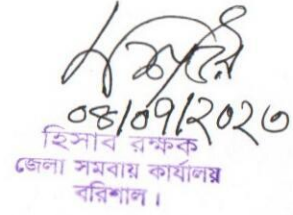 ০৪/০৭/২০২৩
হিসাব রক্ষক
জেলা সমবায় কার্যালয়
বরিশাল।